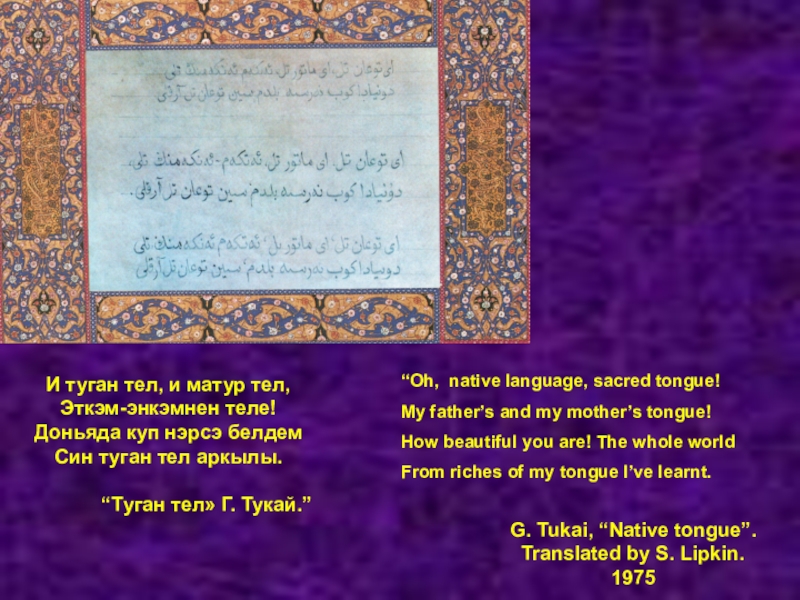 ای توعان تل، ای ماتور تل، ئەتكەم ئەنكەمنڭ تلی
دونیادا كوب نەرسە بلدم سین توعان تل آرقلی
ای توعان تل، ای ماتور تل، ئەتكەم - ئەنكەمنڭ تلی،
دۇنیادا كوب نەرسە بلدم سین توعان تل آرقلی.
ای توعان تل، ای ماتور تل، ئەتكەم ئەنكەمنڭ تلی
دونیادا كوب نەرسە بلدم، سین توعان تل آرقلی
И туган тел, и матур тел,
Эткэм-энкэмнен теле!
Доньяда куп нэрсэ белдем
Син туган тел аркылы.
“Туган тел» Г. Тукай.”
“Oh, native language, sacred tongue!
My father’s and my mother’s tongue!
How beautiful you are! The whole world
From riches of my tongue I’ve learnt.
G. Tukai, “Native tongue”.
Translated by S. Lipkin.
1975